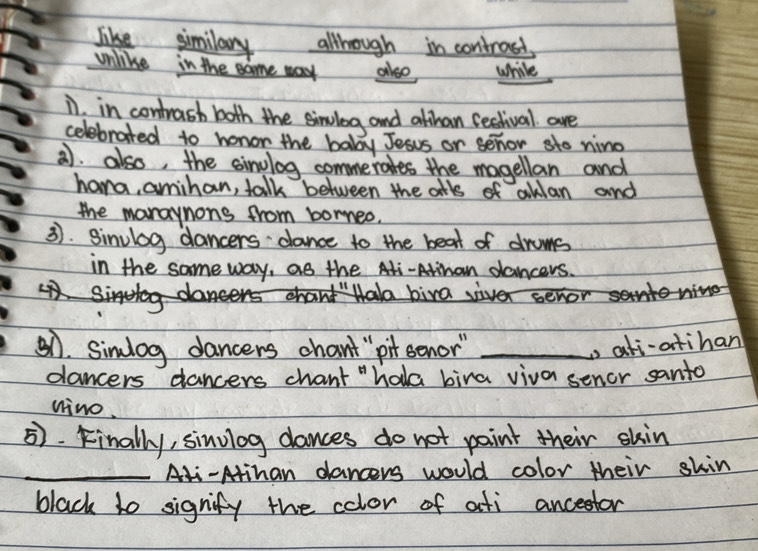 like similary although in contrast
unlike in the same way also while
1). in contrast both the sinulog and atihan festival are
celebrated to honor the baby Jesus or señor sto nino
2). also, the sinulog commerates the magellan and
hama, amihan, talk between the of aklan and
the maraynons from borneo.
3). Sinulog dancers dance to the beat of drums
in the same way, as the Ati-Atihan dancers.
4). Sinulog dancers chant "Hala bira viva senor santo nino
Sinulog dancers chant "pit senor" ________, ati-atihan
dancers dancers chant "hala bira viva senor santo
nino.
5). Finally, sinulog dances do not paint their skin
________ Ati-Atihan dancers would color their skin
black to signify the color of ati ancestor